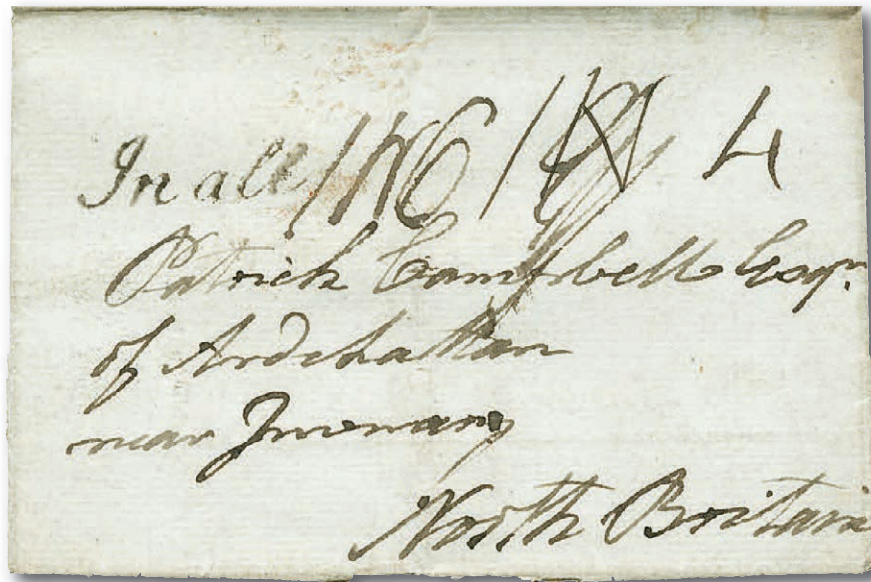 In all 1N6 4
Patrick Campbell Esqr.
of Ardchattan
near Inverary
North Britain